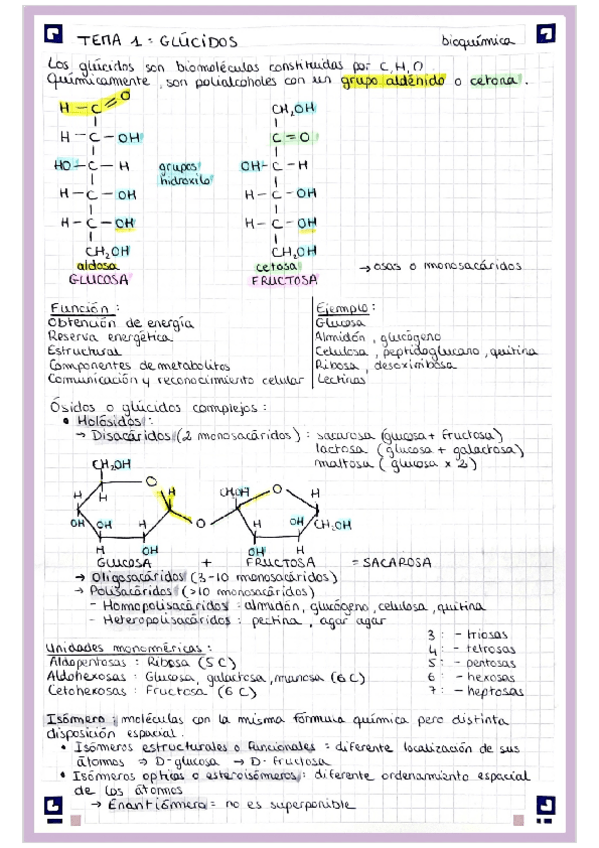 TEMA 1: GLÚCIDOS
bioquímica
Los glúcidos son biomoléculas constituidas por C, H, O.
Químicamente, son polialcoholes con un grupo aldénido o cetona.
H – C = O
H – C – OH
HO – C – H
H – C – OH
H – C – OH
CH2OH
aldosa
GLUCOSA
grupos
hidroxilo
CH2OH
C = O
OH – C – H
H – C – OH
H – C – OH
CH2OH
cetosa
FRUCTOSA
→ osas o monosacáridos
Función:
Obtención de energía
Reserva energética
Estructural
Componentes de metabolitos
Comunicación y reconocimiento celular
Ejemplo:
Glucosa
Almidón, glucógeno
Celulosa, peptidoglucano, quitina
Ribosa, desoxirribosa
Lectinas
Ósidos o glúcidos complejos:
• Holósidos:
→ Disacáridos (2 monosacáridos): sacarosa (glucosa + fructosa)
lactosa (glucosa + galactosa)
maltosa (glucosa x 2)
CH2OH
O
H
H
H
OH
OH
H
H
OH
O
CH2OH
O
H
H
OH
CH2OH
OH
H
GLUCOSA + FRUCTOSA = SACAROSA
→ Oligosacáridos (3-10 monosacáridos)
→ Polisacáridos (>10 monosacáridos)
- Homopolisacáridos: almidón, glucógeno, celulosa, quitina
- Heteropolisacáridos: pectina, agar agar
Unidades monoméricas:
Aldopentosas: Ribosa (5 C)
Aldohexosas: Glucosa, galactosa, manosa (6 C)
Cetohexosas: Fructosa (6 C)
3: - triosas
4: - tetrosas
5: - pentosas
6: - hexosas
7: - heptosas
Isómero: moléculas con la misma fórmula química pero distinta
disposición espacial.
• Isómeros estructurales o funcionales = diferente localización de sus
átomos ⇒ D-glucosa → D-fructosa
• Isómeros opticos o esteroisómeros: diferente ordenamiento espacial
de los átomos
→ Enantiómero = no es superponible